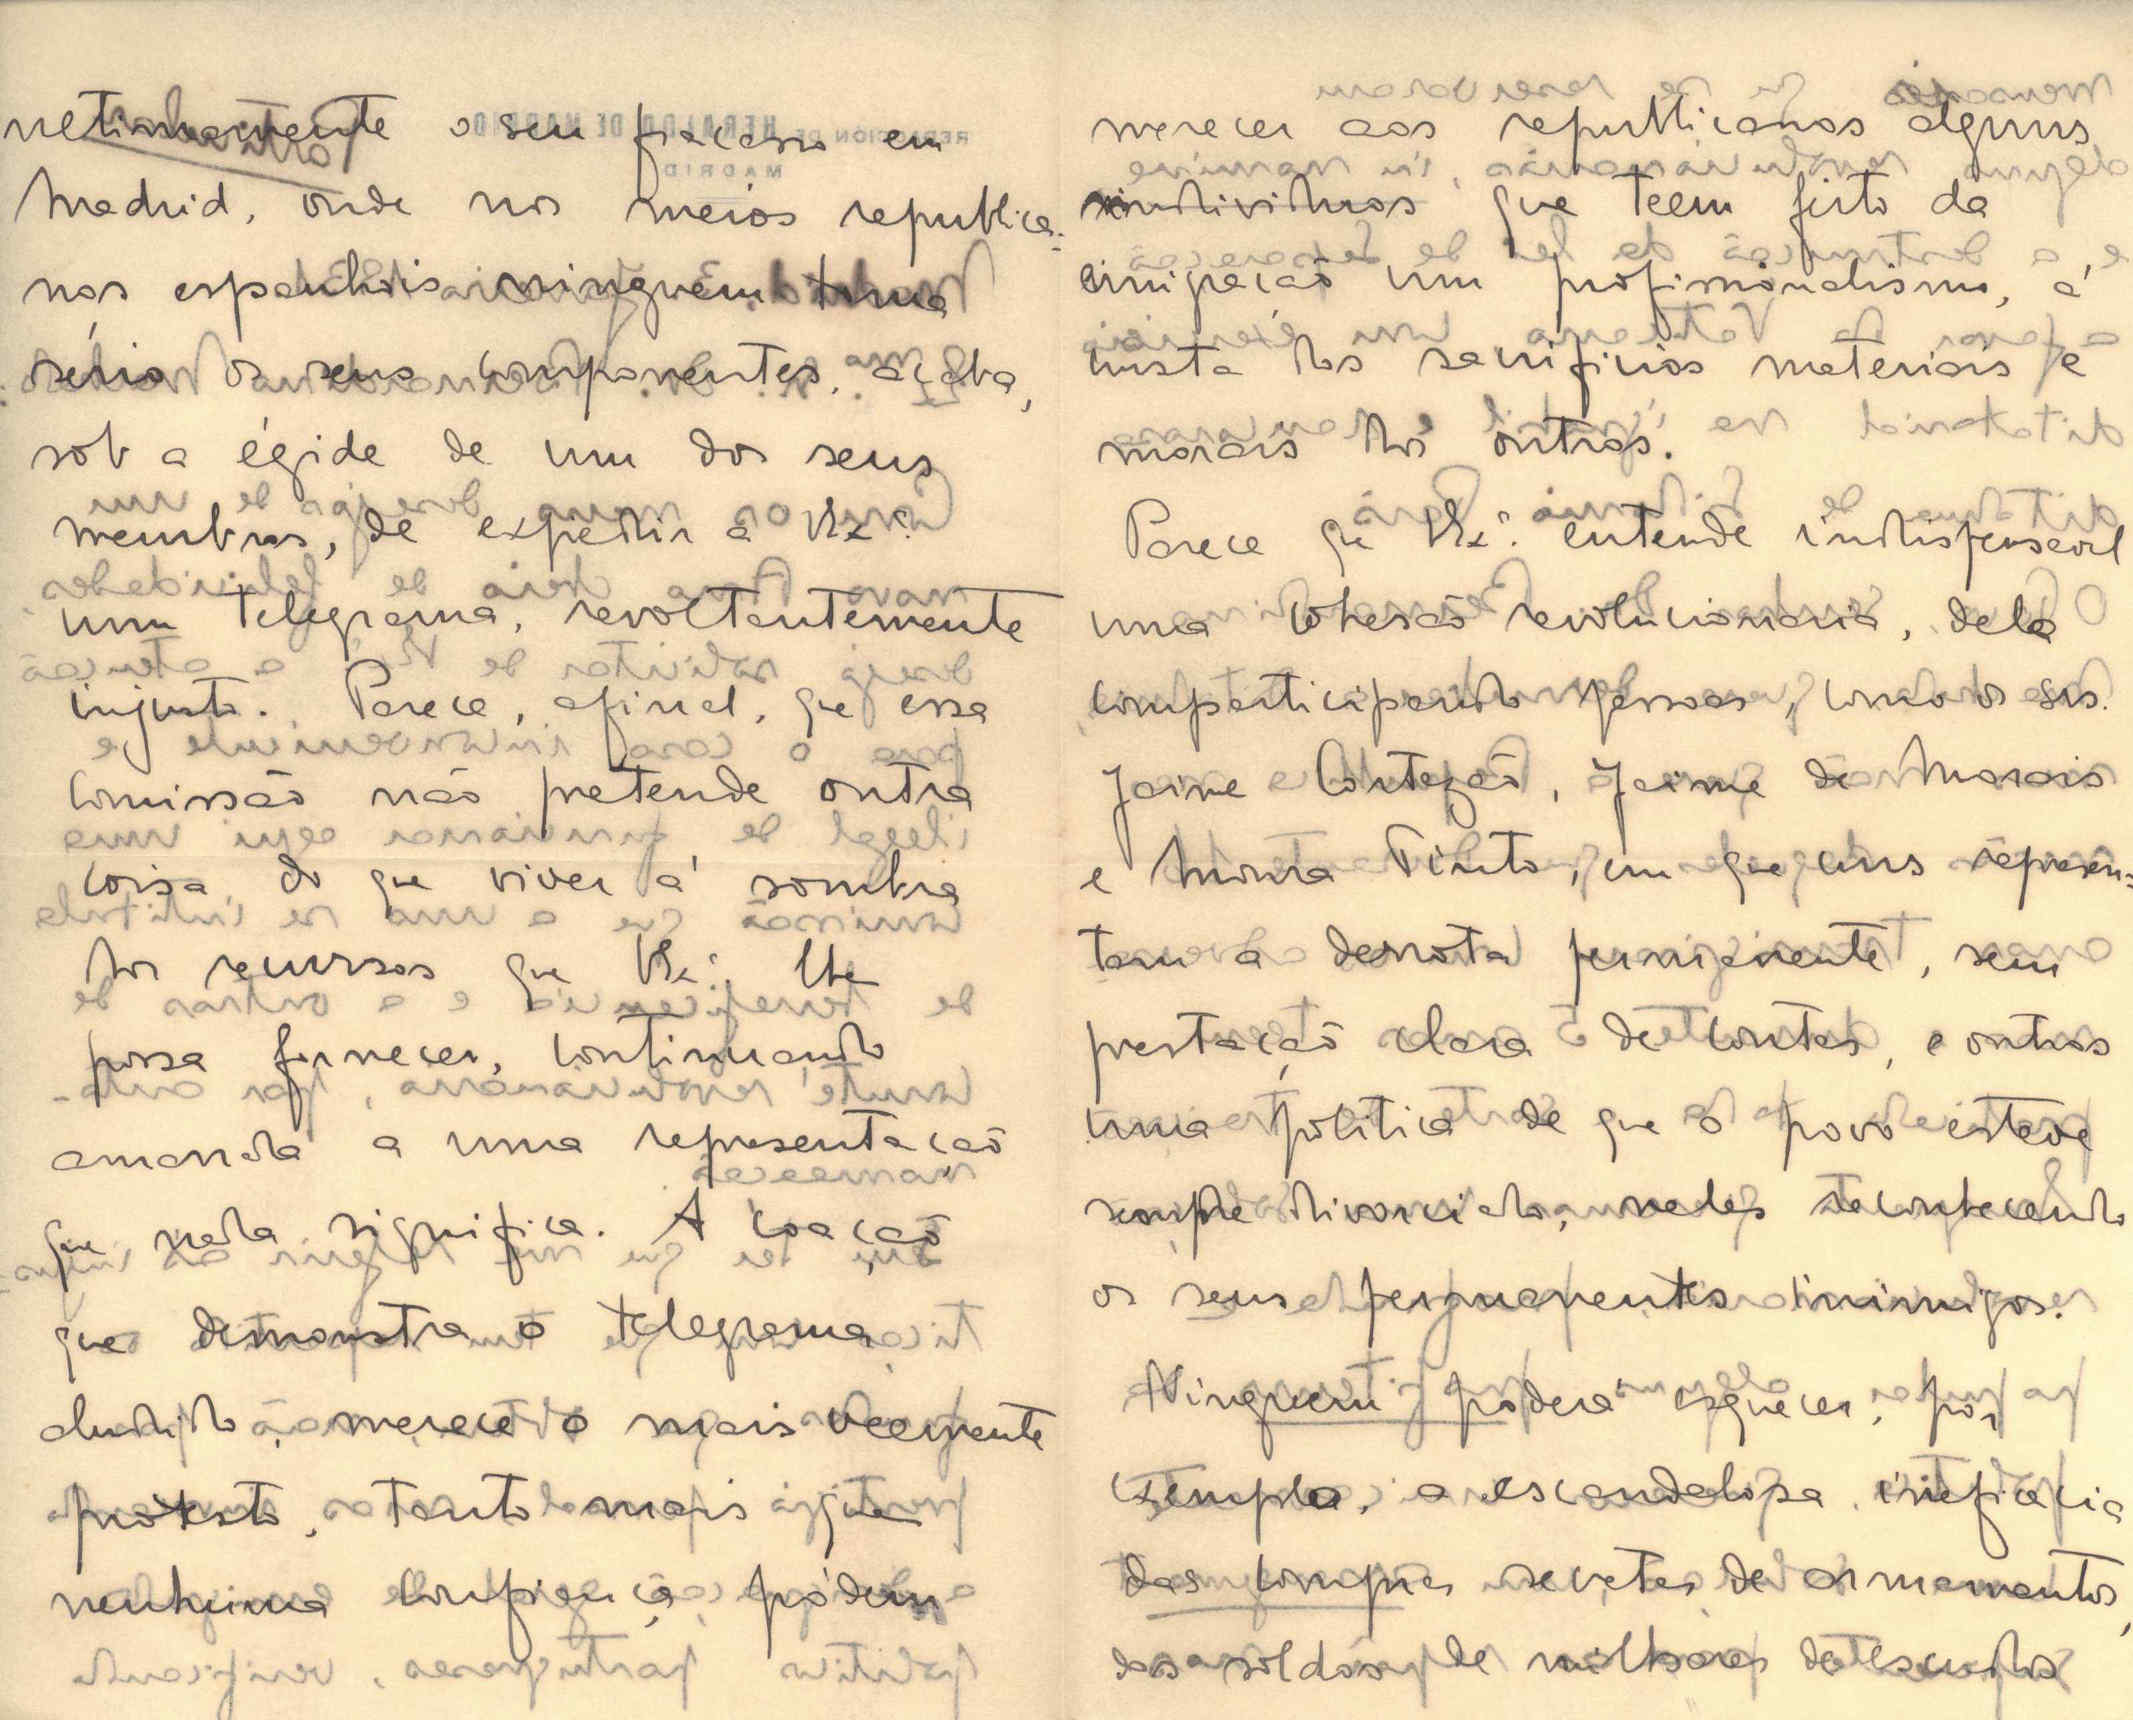 netimamente o seu fracasso em
Madrid, onde nos meios republica-
nos espanhois ninguém toma a
sério os seus componentes, acaba,
sob a égide de um dos seus
membros, de expedir a V. Ex.ª
um telegrama, revoltantemente
injusto. Parece, afinal, que essa
comissão não pretende outra
coisa do que viver á sombra
dos recursos que V. Ex.ª lhe
possa fornecer, continuando
amarrada a uma representação
que nada significa. A coacção
que demonstra o telegrama
aludido, merece o mais veemente
protesto, tanto mais que
nenhuma confiança pódem
merecer aos republicanos alguns
individuos que teem feito da
emigração um profissionalismo, á
custa dos sacrificios materiais e
morais dos outros.
Parece que V. Ex.ª entende indispensavel
uma cohesão revolucionaria, dela
comparticipando pessoas, como os srs.
Jaime Cortezão, Jaime de Morais
e Moura Pinto, em que uns represen-
tam a derrota permanente, sem
prestação clara de contas, e outros
uma politica de que o povo esteve
sempre divorciado, neles reconhecendo
os seus permanentes inimigos.
Ninguem poderá esquecer, por
exemplo, a escandalosa ineficacia
das compras secretas de armamentos,
dos soldos de milhares de escudos